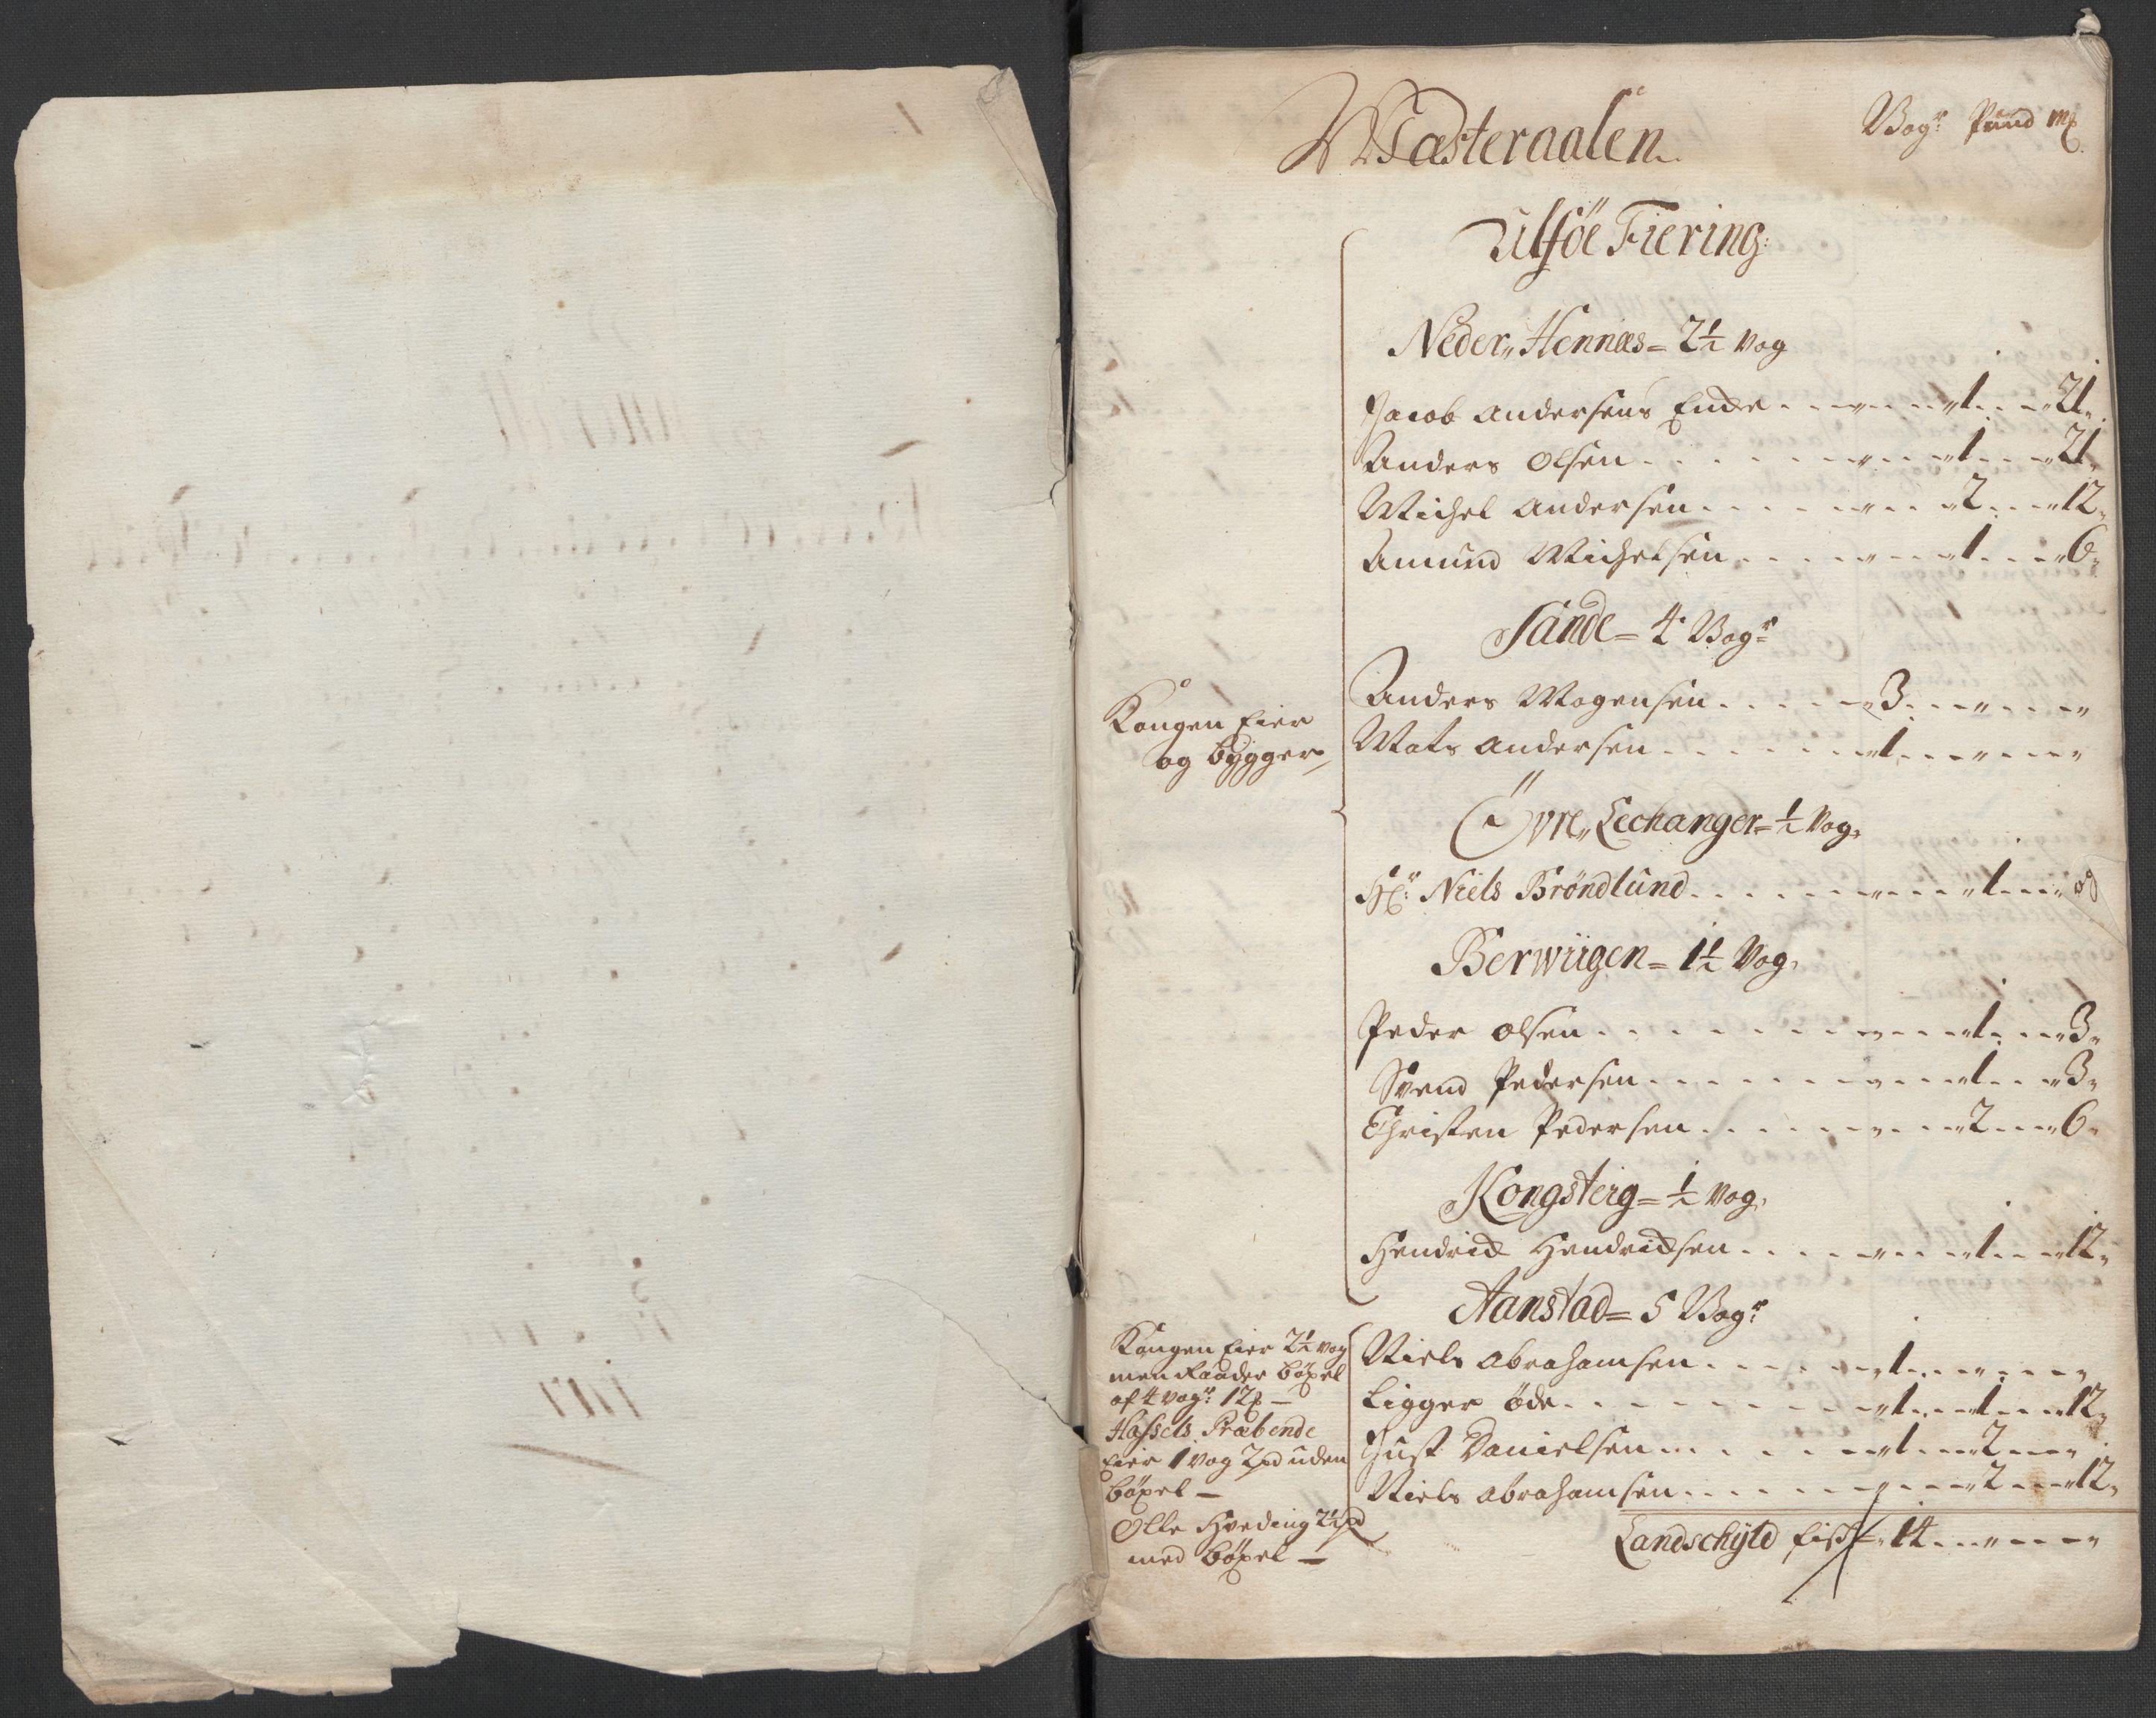 Wæsteraalen
Vog:r Pund mk
Ulføe Fiering:
Neder„ Hennæs = 2½ Vog
Jacob Andersens Encke . . „ . . „1 . . „21„
Anders Olsen . . . . „ . . „1 . . „21„
Michel Andersen . . . . „ . . „2 . . „12„
Amund Michelsen . . . „ . . „1 . . „6„
Sande = 4 Vog:r
Anders Mogensen . . . . „3 . . „ . . „
Mats Andersen . . . . „1 . . „ . . „
Kongen Eier
og bygger
Öfre„ Lechanger = ½ Vog„
Hr: Niels Brøndlund . . . . „ . . „1 . . „
Berwiigen = 1½ Vog„
Peder Olsen . . . . „ . . „1 . . „3„
Svend Pedersen . . . . „ . . „1 . . „3„
Christen Pedersen . . . . „ . . „2 . . „6„
Kongsteig = ½ Vog„
Hendrick Hendricksen . . . . „ . . „1 . . „12„
Aanstad = 5 Vog:r
Kongen Eier 2½ Vog
men Raader böxel
af 4 Vog:r 12
Hassels Præbende
Eier 1 Vog 2pd uden
böxel —
Olle Hveding 2½pd
med böxel —
Niels Abrahamsen . . . . „1 . . „ . . „
Ligger öde . . . . „1 . . „1 . . „12„
Just Danielsen . . . . „1 . . „2 . . „
Niels Abrahamsen . . . . „ . . „2 . . „12„
Landschyld fisk = 14 . . „ . . „